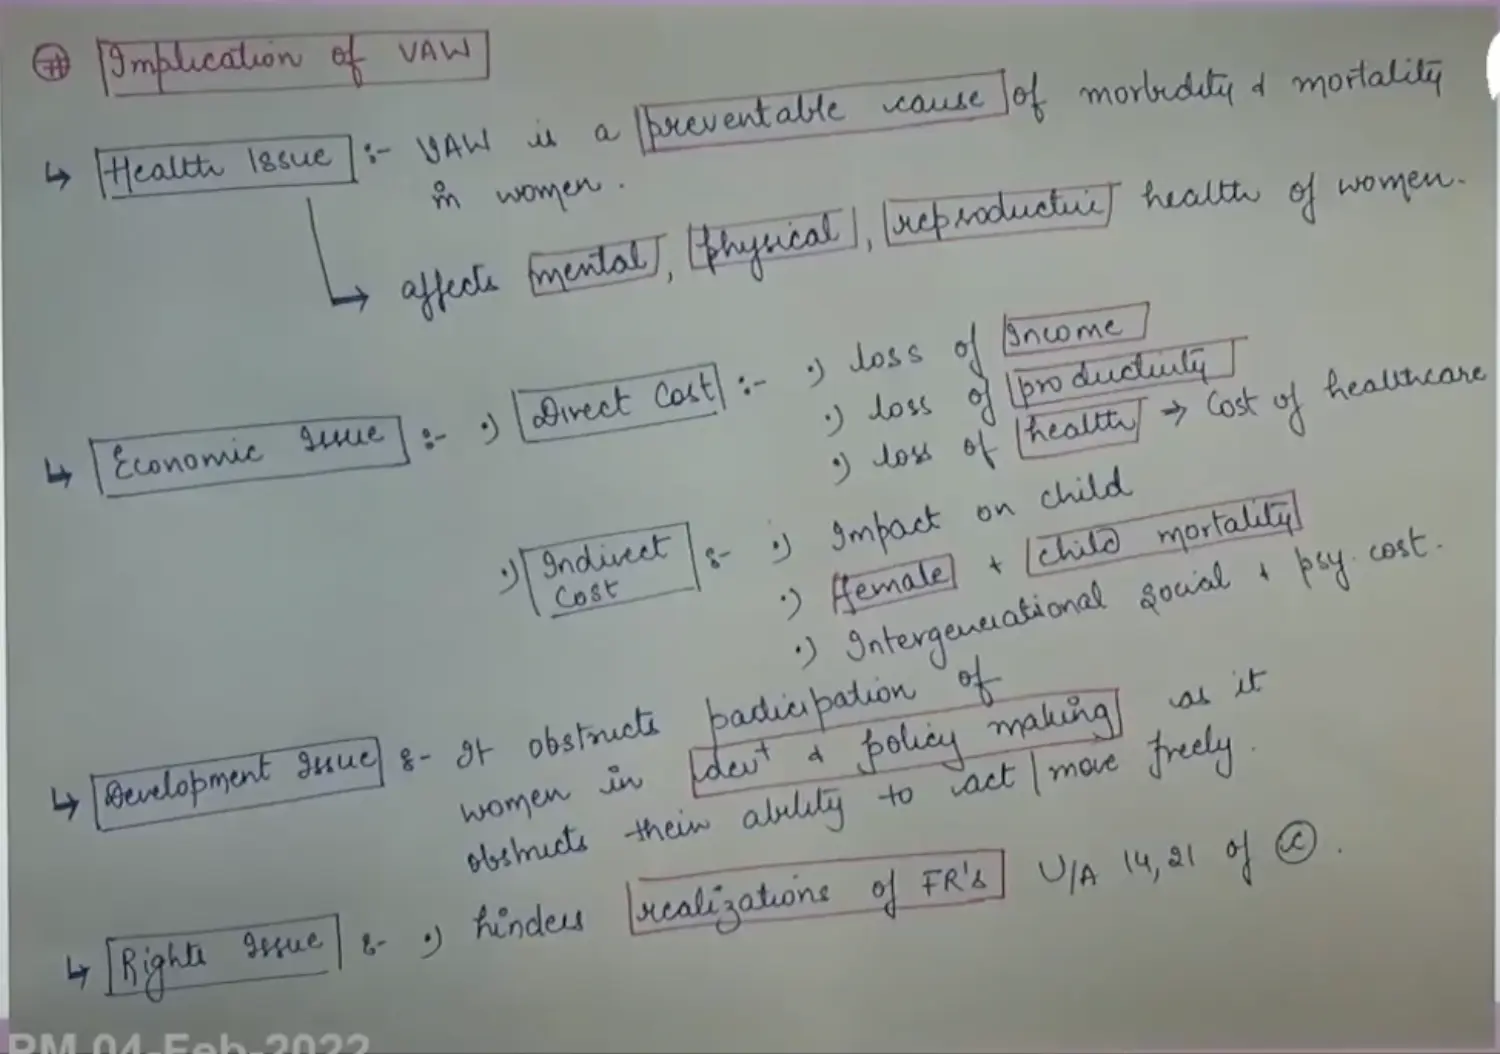 # Implication of VAW
↳ Health Issue :- VAW is a preventable cause of morbidity & mortality
in women.
→ affects mental, physical, reproductive health of women.
↳ Economic Issue :- •) Direct Cost :- •) loss of Income
•) loss of productivity
•) loss of health → Cost of healthcare
•) Indirect Cost :- •) Impact on child
•) female + child mortality
•) Intergenerational social + psy. cost.
↳ Development Issue :- It obstructs participation of
women in devt & policy making as it
obstructs their ability to act / move freely.
↳ Rights Issue :- •) hinders realizations of FR's U/A 14, 21 of ©.
PM 04-Feb-2022